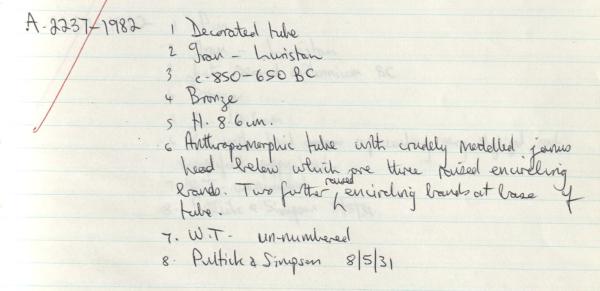 A. 2237-1982 1 Decorated tube
2 Iran - Luristan
3 c. 850-650 BC
4 Bronze
5 H. 8.6 cm.
6 Anthropomorphic tube with crudely modelled janus
head below which are three raised encircling
bands. Two further raised encircling bands at base of
tube.
7. W.T. un-numbered
8. Puttick & Simpson 8/5/31